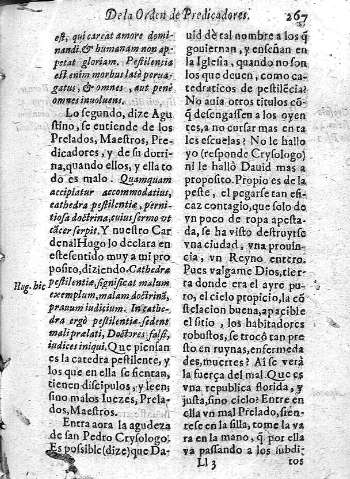 De la Orden de Predicadores. 267
est, qui careat amore domi-
nandi. & humanam non ap-
petat gloriam. Pestilentia
est enim morbus latè perua-
gatus, & omnes, aut penè
omnes inuoluens.
Lo segundo, dize Agu
stino, se entiende de los
Prelados, Maestros, Pre-
dicadores, y de su dotri-
na, quando ellos, y ella to
do es malo. Quamquam
accipiatur accommodatius,
cathedra pestilentiæ, perni-
tiosa doctrina, cuius sermo vt
cãcer serpit. Y nuestro Car
denal Hugo lo declara en
este sentido muy a mi pro
posito, diziendo. Cathedra
Hug. hic.
pestilentiæ, significat malum
exemplum, malam doctrinã,
prauum iudicium. In cathe-
dra ergò pestilentiæ sedent
mali prælati, Doctores falsi,
iudices iniqui. Que piensan
es la catedra pestilente, y
los que en ella se sientan,
tienen discipulos, y leen,
sino malos Iuezes, Prela-
dos, Maestros.
Entra aora la agudeza
de san Pedro Crysologo.
Es possible (dize) que Da-
uid dè tal nombre a los q̃
gouiernan, y enseñan en
la Iglesia, quando no son
los que deuen, como ca-
tedraticos de pestilẽcia?
No auia otros titulos cõ-
q̃ desengañassen a los oyen
tes, a no cursar mas en ta
les escuelas? No le hallo
yo (responde Crysologo)
ni le hallò Dauid mas a
proposito. Propio es de la
peste, el pegarse tan efi-
caz contagio, que solo de
vn poco de ropa apesta-
da, se ha visto destruyrse
vna ciudad, vna prouin-
cia, vn Reyno entero.
Pues valgame Dios, tier
ra donde era el ayre pu-
ro, el cielo propicio, la cõ
stelacion buena, apacible
el sitio, los habitadores
robustos, se trocò tan pres
to en ruynas, enfermeda
des, muertes? Aì se verà
la fuerça del mal. Que es
vna republica florida, y
justa, sino cielo? Entre en
ella vn mal Prelado, siẽn-
tese en la silla, tome la va
ra en la mano, q̃ por ella
va passando a los subdi-
Ll 3 tos